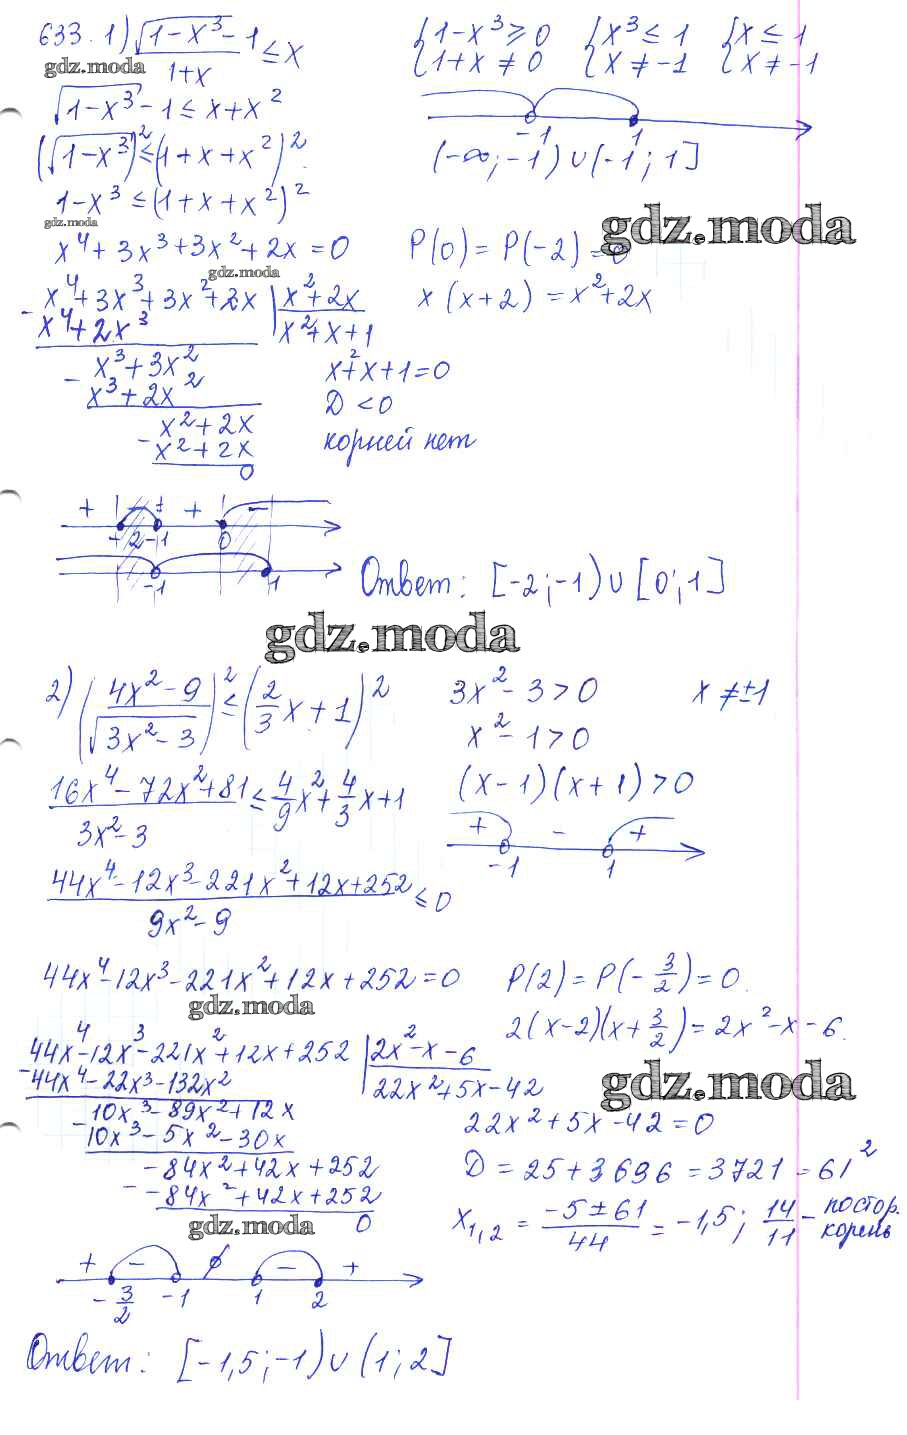 633. 1) (√(1-x³) - 1)/(1+x) ≤ x
{1-x³ ≥ 0 {x³ ≤ 1 {x ≤ 1
{1+x ≠ 0 {x ≠ -1 {x ≠ -1
gdz.moda
√(1-x³) - 1 ≤ x+x²
-1 1
(√(1-x³))² ≤ (1+x+x²)²
(-∞; -1) ∪ (-1; 1]
1-x³ ≤ (1+x+x²)²
gdz.moda
gdz.moda
x⁴+3x³+3x²+2x = 0
P(0) = P(-2) = 0
gdz.moda
x⁴+3x³+3x²+2x | x²+2x
x(x+2) = x²+2x
x⁴+2x³ x²+x+1
- x³+3x²
x²+x+1=0
x³+2x²
D <0
x²+2x
- x²+2x
корней нет
0
+ - + -
-2 -1 0
-1 1
Ответ: [-2; -1) ∪ [0; 1]
gdz.moda
2) ((4x²-9)/√(3x²-3))² ≤ (2/3 x + 1)²
3x²-3>0 x ≠ ±1
x²-1>0
(16x⁴-72x²+81)/(3x²-3) ≤ 4/9 x² + 4/3 x + 1
(x-1)(x+1)>0
+ - +
-1 1
(44x⁴-12x³-221x²+12x+252)/(9x²-9) ≤ 0
44x⁴-12x³-221x²+12x+252=0
P(2) = P(-3/2) = 0.
gdz.moda
2(x-2)(x+3/2) = 2x²-x-6.
44x⁴-12x³-221x²+12x+252 | 2x²-x-6
-44x⁴-22x³-132x² 22x²+5x-42
gdz.moda
10x³-89x²+12x
-10x³-5x²-30x
22x²+5x-42=0
-84x²+42x+252
- -84x²+42x+252
D = 25+3696 = 3721 = 61²
0
x₁,₂ = (-5±61)/44 = -1,5; 14/11 - постор. корень
gdz.moda
+ - - +
-3/2 -1 1 2
Ответ: [-1,5; -1) ∪ (1; 2]